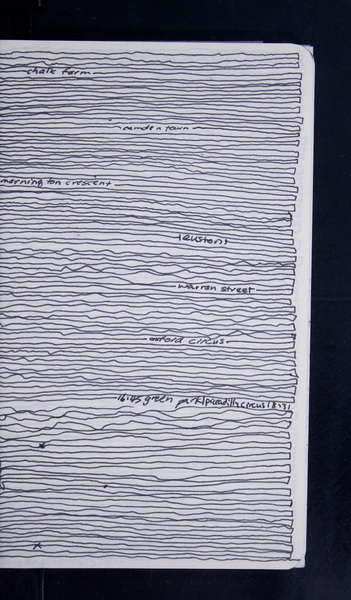 chalk farm
camden town
mornington crescent
euston
warren street
oxford circus
16:45 green park/picadilly circus